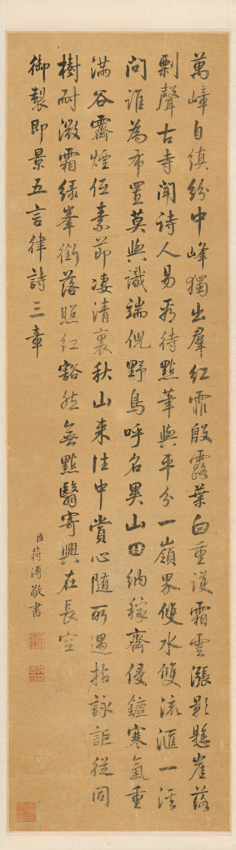 萬嶂自繽紛中峰獨出羣紅霏殷露葉白重護霜雲漲影懸崖落
剩聲古寺聞詩人易為待點筆與平分一嶺界便水雙流滙一溪
問誰為布置莫與識端倪野鳥呼名異山田納稼齊侵鑪寒氣重
滿谷霽煙低素節凄清裏秋山來往中賞心隨所遇拈詠詎從同
樹耐微霜綠峯銜落照紅豁然無點翳寄興在長空
御製即景五言律詩三章
臣蔣溥敬書